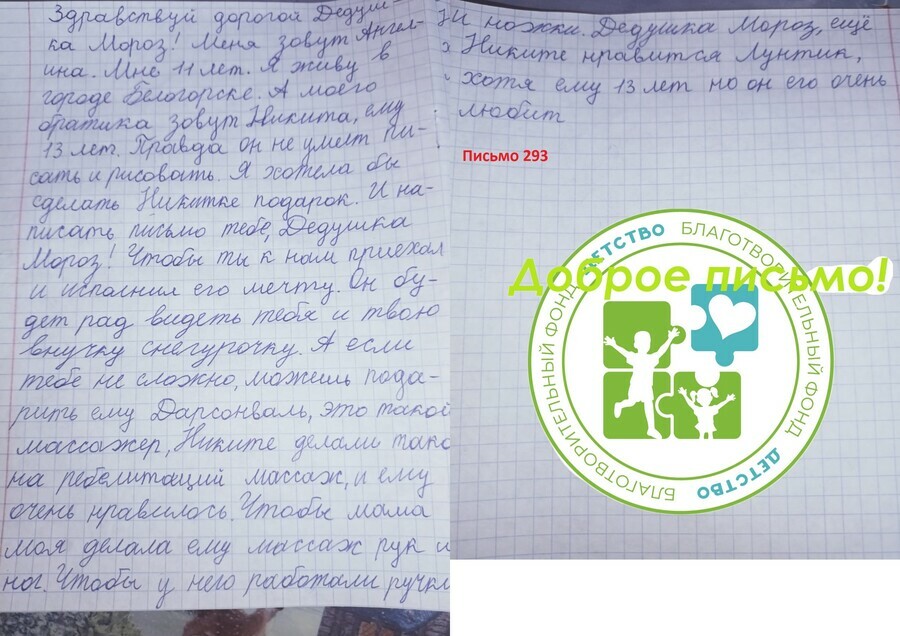 Здравствуй дорогой Дедуш-
ка Мороз! Меня зовут Ангел-
ина. Мне 11 лет. Я живу в
городе Белогорске. А моего
братика зовут Никита, ему
13 лет. Правда он не умеет пи-
сать и рисовать. Я хотела бы
сделать Никитке подарок. И на-
писать письмо тебе, Дедушка
Мороз! Чтобы ты к нам приехал
и исполнил его мечту. Он бу-
дет рад видеть тебя и твою
внучку снегурочку. А если
тебе не сложно, можешь пода-
рить ему Дарсонваль, это такой
массажер, Никите делали тако
на ребелитаций массаж, и ему
очень нравилось. Чтобы мама
моя делала ему массаж рук и
ног. Чтобы у него работали ручки
И ножки. Дедушка Мороз, ещё
Никите нравится Лунтик,
хотя ему 13 лет но он его очень
любит
Письмо 293
Доброе письмо!
БЛАГОТВОРИТЕЛЬНЫЙ ФОНД ДЕТСТВО
БЛАГОТВОРИТЕЛЬНЫЙ ФОНД ДЕТСТВО